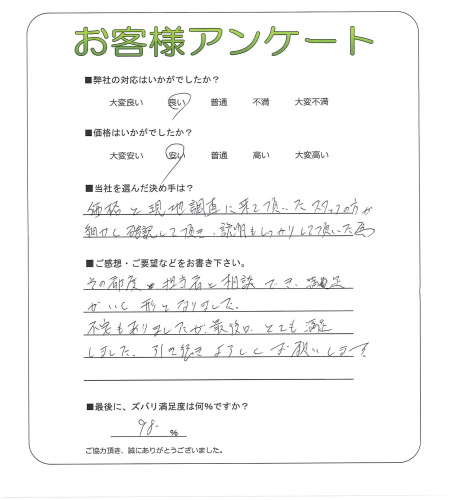 お客様アンケート
■弊社の対応はいかがでしたか?
大変良い 良い 普通 不満 大変不満
■価格はいかがでしたか?
大変安い 安い 普通 高い 大変高い
■当社を選んだ決め手は?
価格と現地調査に来て頂いたスタッフの方が
細かく確認して頂き、説明もしっかりして頂いた為
■ご感想・ご要望などをお書き下さい。
その都度 担当者と相談でき、満足
がいく形となりました。
不安もありましたが、最後は とても満足
しました。引き続きよろしくお願いします
■最後に、ズバリ満足度は何%ですか?
98 %
ご協力頂き、誠にありがとうございました。